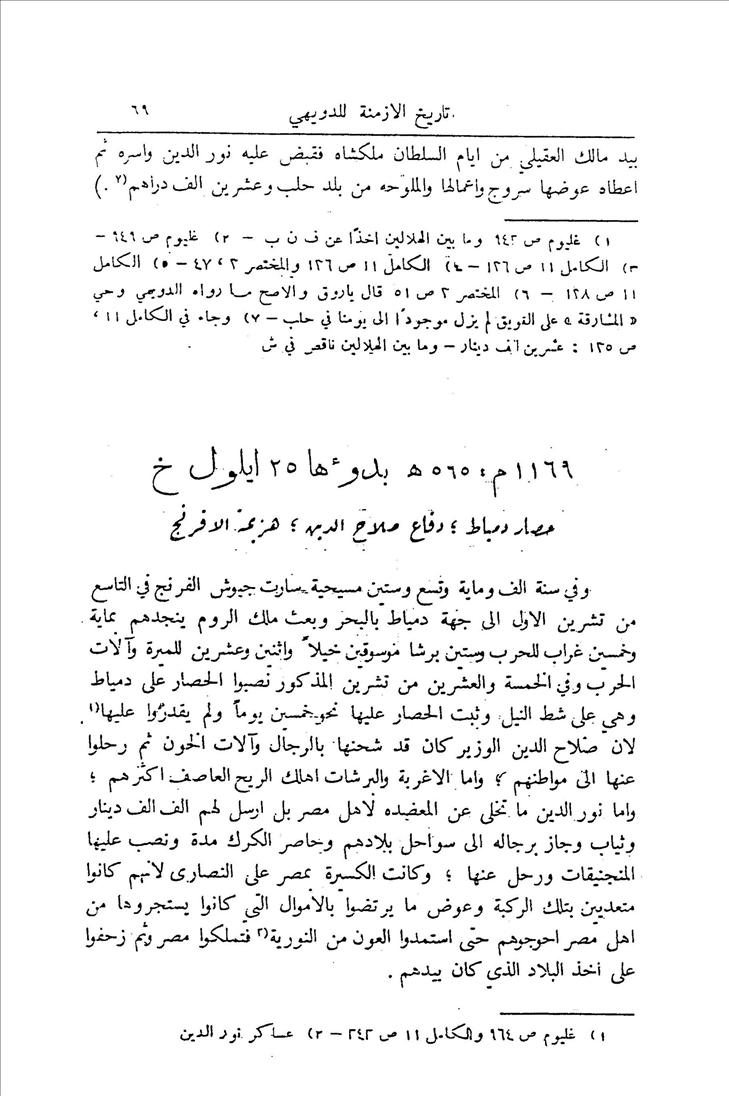 تاريخ الازمنة للدويهي ٦٩
بيد مالك العقيلي من ايام السلطان ملكشاه فقبض عليه نور الدين واسره ثم
اعطاه عوضها سروج واعمالها والملوحه من بلد حلب وعشرين الف دراهم(٧ .)
١) غليوم ص ٩٤٣ وما بين الهلالين اخذًا عن ف ن ب – ٢) غليوم ص ٩٤٦ –
٣) الكامل ١١ ص ١٢٦ – ٤) الكامل ١١ ص ١٢٦ والمختصر ٢ ، ٤٧ – ٥) الكامل
١١ ص ١٢٨ – ٦) المختصر ٢ ص ٥١ قال ياروق والاصح ما رواه الدويهي وحي
« المشارقة » على القويق لم يزل موجودًا الى يومنا في حلب – ٧) وجاء في الكامل ١١ ،
ص ١٣٥ : عشرين الف دينار – وما بين الهلالين ناقص في ش
١١٦٩ م ؛ ٥٦٥ ھ بدوءها ٢٥ ايلول خ
حصار دمياط ؛ دفاع صلاح الدين ؛ هزيمة الافرنج
وفي سنة الف وماية وتسع وستين مسيحية سارت جيوش الفرنج في التاسع
من تشرين الاول الى جهة دمياط بالبحر وبعث ملك الروم ينجدهم بماية
وخمسين غراب للحرب وستين برشا موسوقين خيلاً واثنين وعشرين للميرة وآلات
الحرب وفي الخمسة والعشرين من تشرين المذكور نصبوا الحصار على دمياط
وهي على شط النيل وثبت الحصار عليها نحو خمسين يوماً ولم يقدروا عليها(١
لان صلاح الدين الوزير كان قد شحنها بالرجال وآلات الخون ثم رحلوا
عنها الى مواطنهم ؛ واما الاغربة والبرشات اهلك الريح العاصف اكثرهم ؛
واما نور الدين ما تخلى عن المعضده لاهل مصر بل ارسل لهم الف الف دينار
وثياب وجاز برجاله الى سواحل بلادهم وحاصر الكرك مدة ونصب عليها
المنجنيقات ورحل عنها ؛ وكانت الكسيرة بمصر على النصارى لانهم كانوا
متعديين بتلك الركبة وعوض ما يرتضوا بالاموال التي كانوا يستجروها من
اهل مصر احوجوهم حتى استمدوا العون من النورية(٢ فتملكوا مصر وثم زحفوا
على اخذ البلاد الذي كان بيدهم .
١) غليوم ص ٩٦٤ والكامل ١١ ص ٢٤٢ – ٢) عساكر نور الدين